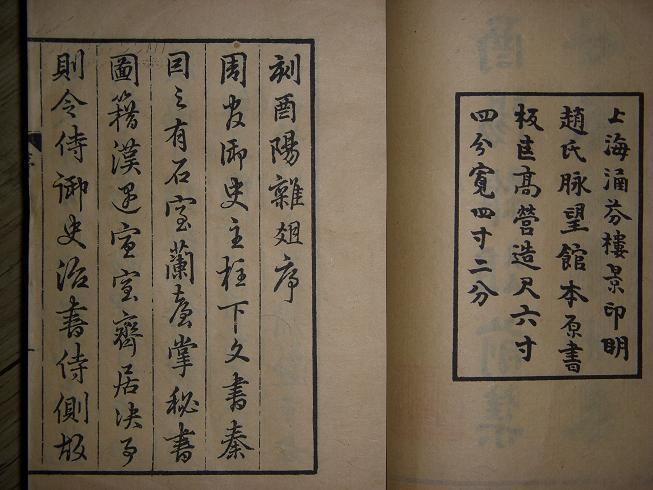 上海涵芬樓景印明
趙氏脉望館本原書
板匡高營造尺六寸
四分寬四寸二分
刻酉陽雜俎序
周官御史主柱下文書秦
因之有石室蘭臺掌秘書
圖籍漢宣室齊居決事
則令侍御史治書侍側